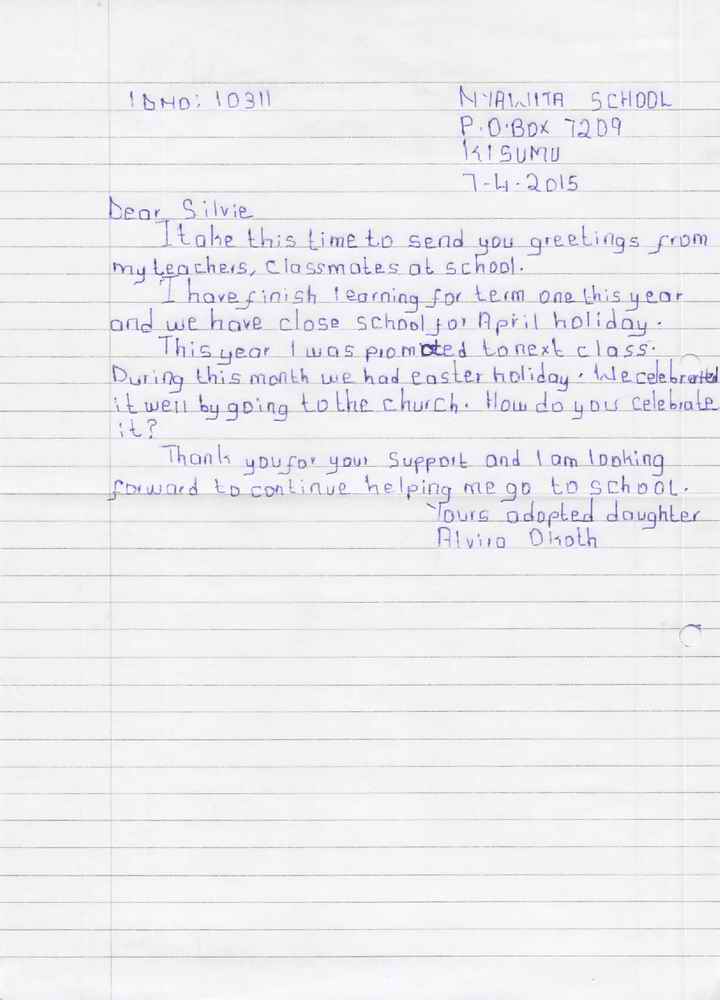 IDNO: 10311
NYAWITA SCHOOL
P.O.BOX 7209
KISUMU
7-4-2015
Dear Silvie
I take this time to send you greetings from
my teachers, classmates at school.
I have finish learning for term one this year
and we have close school for April holiday.
This year I was promoted to next class.
During this month we had easter holiday. We celebrated
it well by going to the church. How do you celebrate
it?
Thank you for your support and I am looking
forward to continue helping me go to school.
Yours adopted daughter
Alvira Okoth